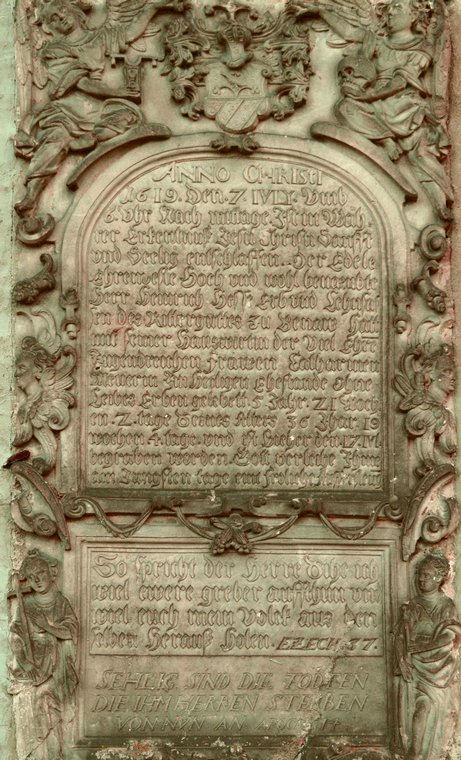 ANNO CHRISTI
1619. Den. 7 IVLY. Vmb
6. Vhr Nach mittage Ist in Wah
rer Erkentnus Jesu Christi Sanfft
vnd Seelig entschlaffen. Der Edele
Ehrenveste Hoch vnd wohl benambte
Herr Heinrich Erb vnd Lehnsas
des Rittergutes Zu Hatt
mit seiner Hauswirtin der Viel Ehrn
Tugendreichen Frawen Catharinen
in Im Heiligen Ehestande ohne
Leibes Erben gelebett 5 Jahr 21 Woch
en 2. tage Seines Alters 36 Jhar 19
wochen 4. tage vnd ist den 17 IVL
begraben worden Gott verleihe Ihm
am Jungsten tage ein
So spricht der Herre Sihe ich
wiel ewere greber auffthun vn
wiel euch mein Volck aus den
selben Herauß Holen. EZECH. 37.
SEHLIG SIND DIE TODTEN
DIE IHM HERREN STERBEN
VON NVN AN